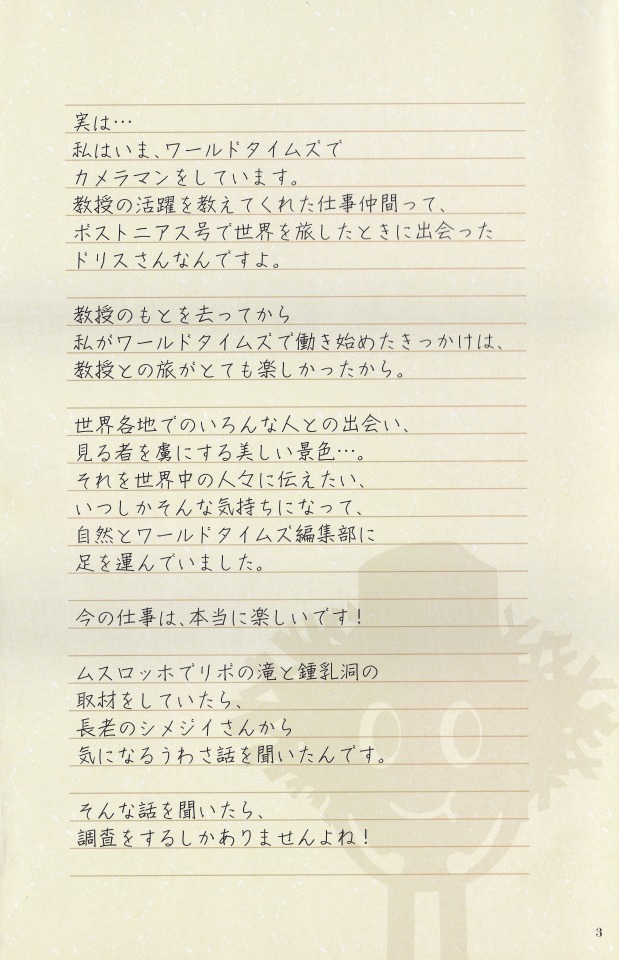 実は…
私はいま、ワールドタイムズで
カメラマンをしています。
教授の活躍を教えてくれた仕事仲間って、
ポストニアス号で世界を旅したときに出会った
ドリスさんなんですよ。
教授のもとを去ってから
私がワールドタイムズで働き始めたきっかけは、
教授との旅がとても楽しかったから。
世界各地でのいろんな人との出会い、
見る者を虜にする美しい景色…。
それを世界中の人々に伝えたい、
いつしかそんな気持ちになって、
自然とワールドタイムズ編集部に
足を運んでいました。
今の仕事は、本当に楽しいです！
ムスロッホでリポの滝と鍾乳洞の
取材をしていたら、
長老のシメジイさんから
気になるうわさ話を聞いたんです。
そんな話を聞いたら、
調査をするしかありませんよね！
3